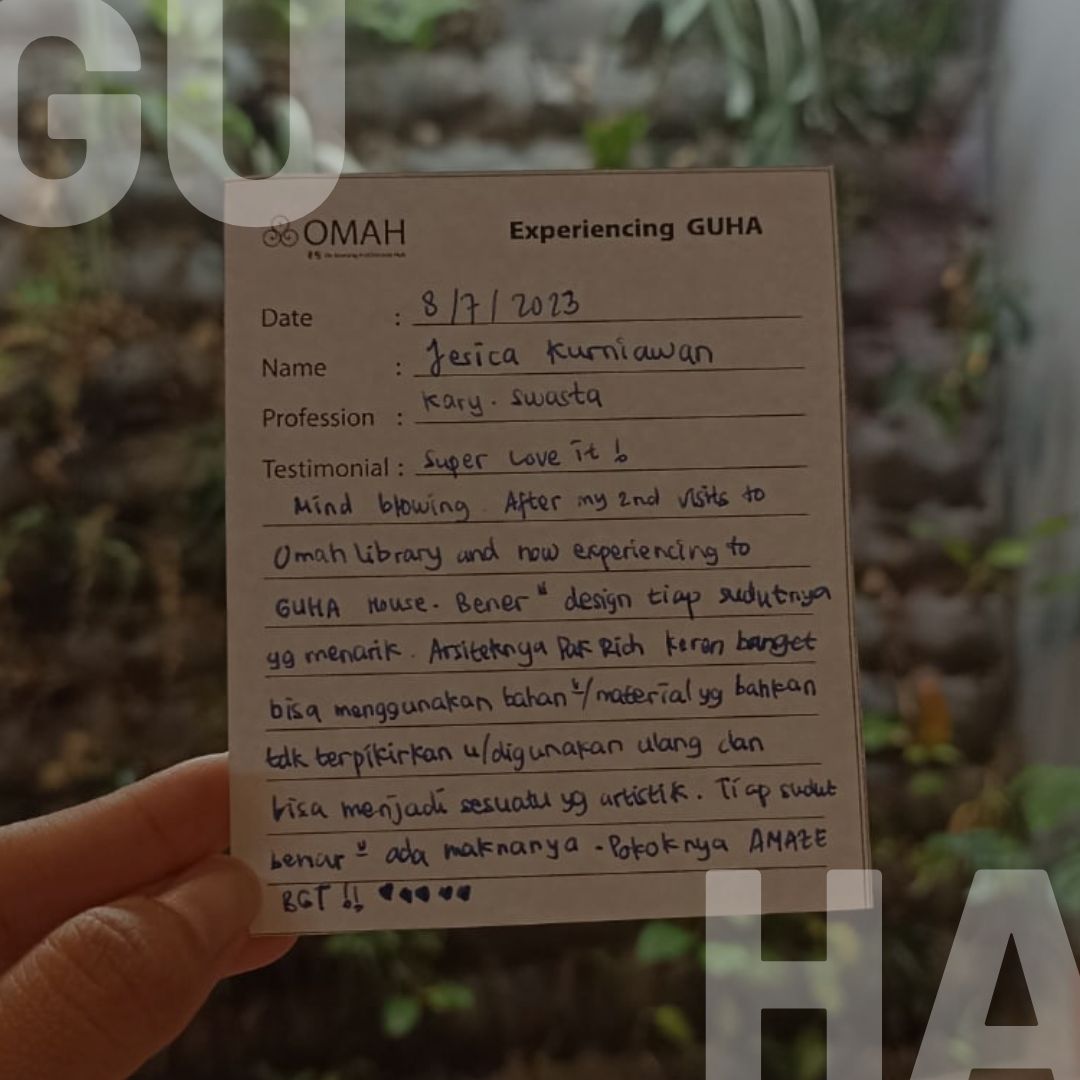 GU
OMAH
Experiencing GUHA
Date : 8/7/2023
Name : Jesica Kurniawan
Profession : Kary. Swasta
Testimonial : Super Love it !
Mind blowing. After my 2nd visits to
Omah library and now experiencing to
GUHA House. Bener" design tiap sudutnya
yg menarik. Arsiteknya Pak Rich keren banget
bisa menggunakan bahan"/material yg bahkan
tdk terpikirkan u/digunakan ulang dan
bisa menjadi sesuatu yg artistik. Tiap sudut
benar" ada maknanya. Pokoknya AMAZE
BGT !! ♥♥♥♥♥
HA